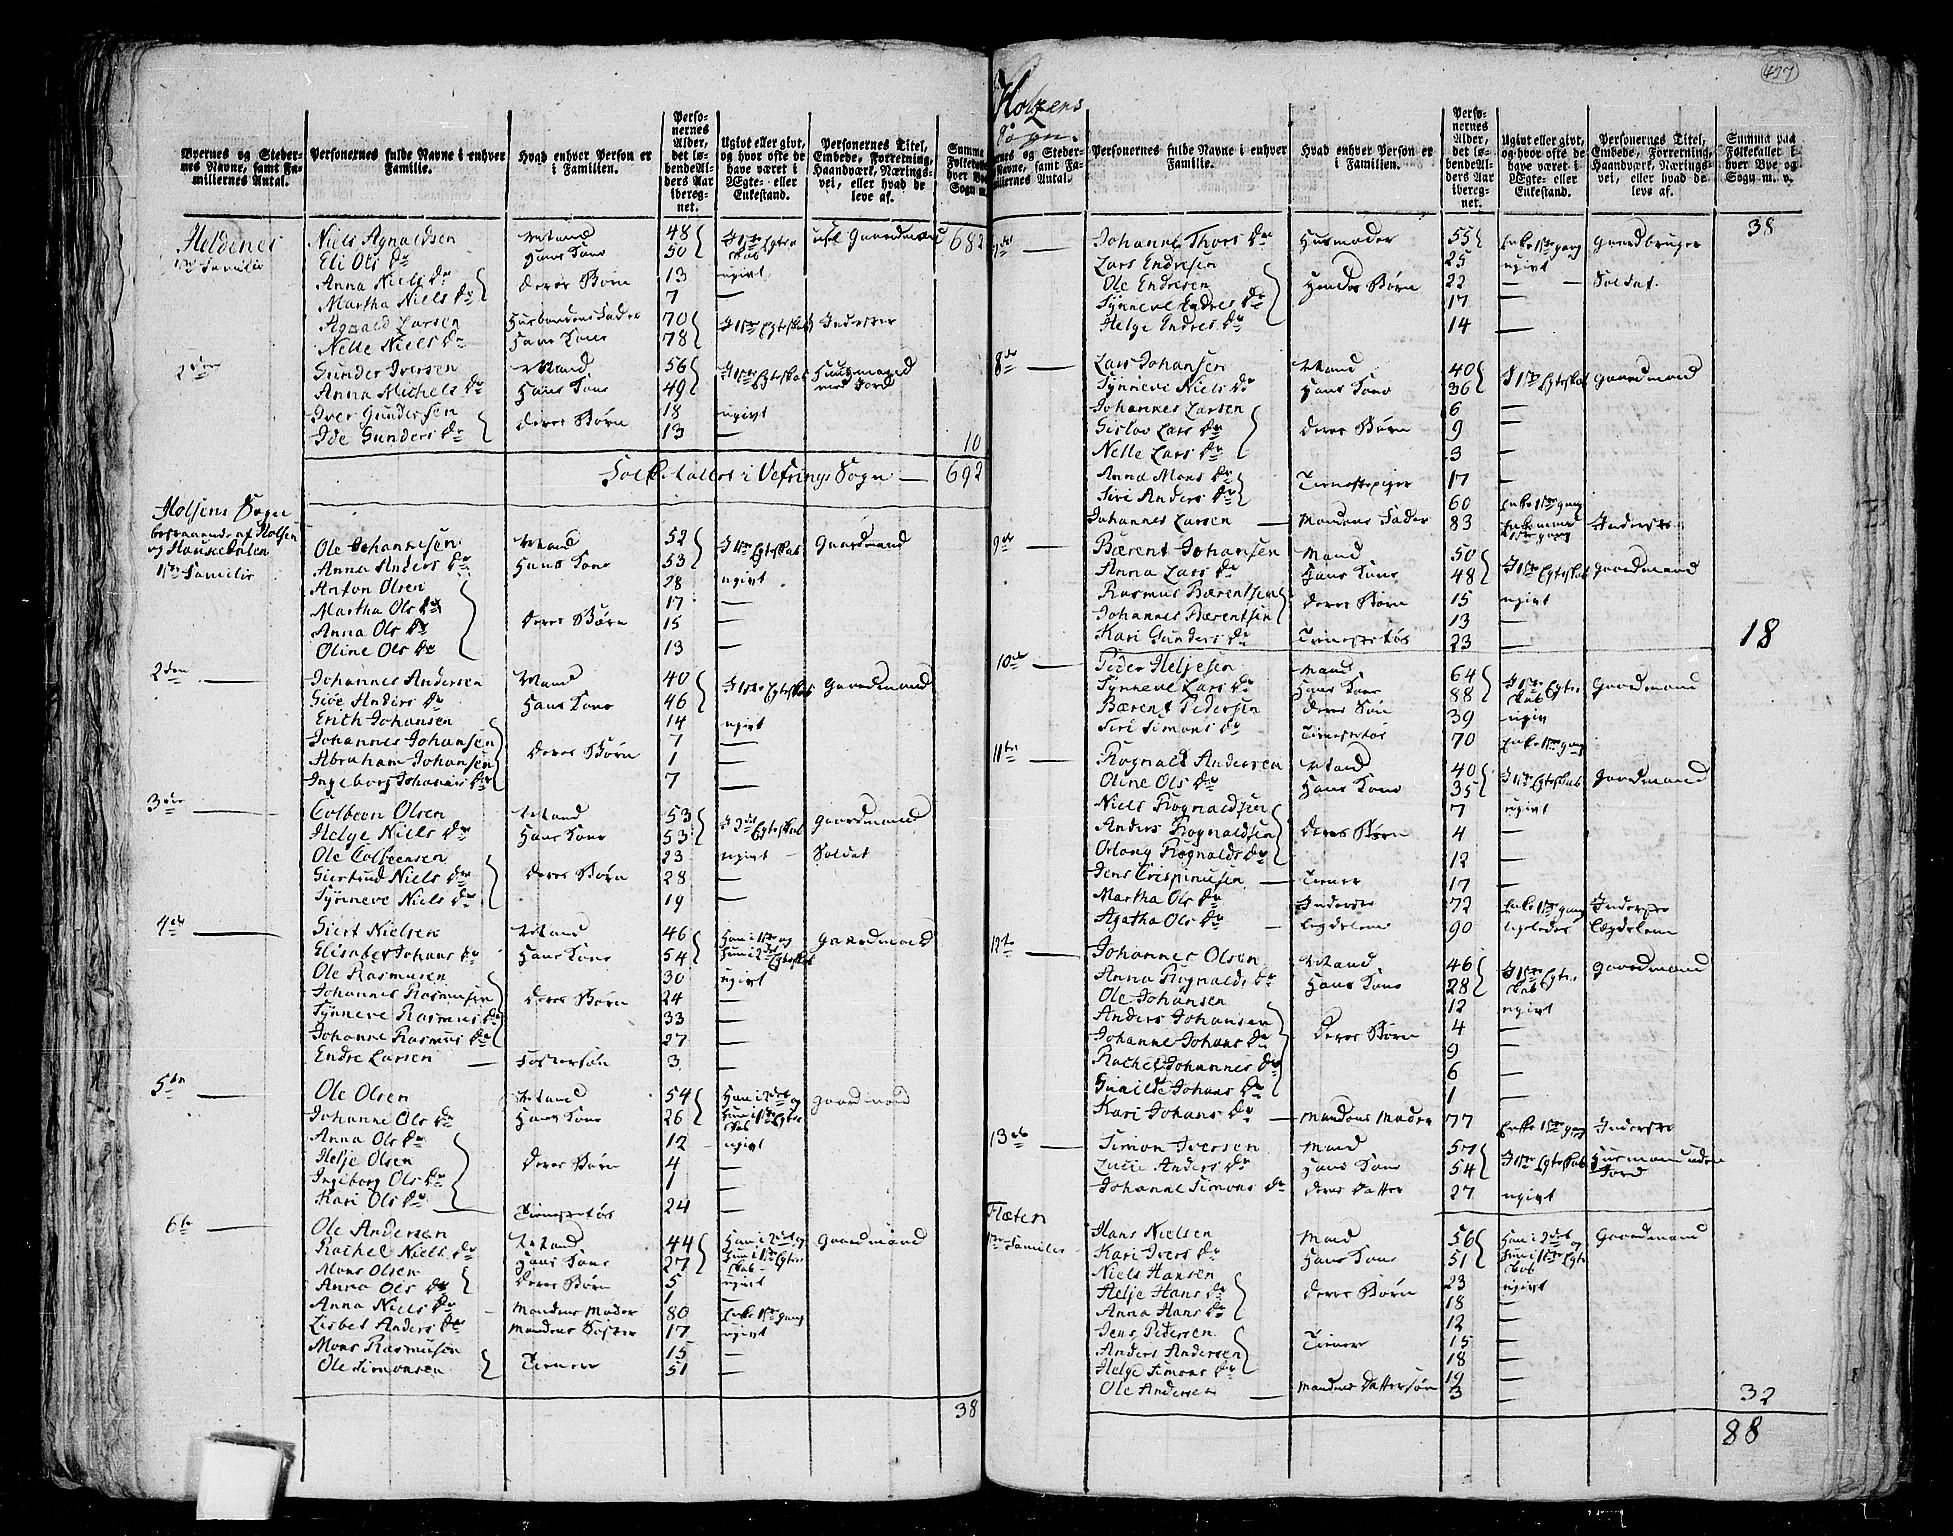 427
Byernes og Steder-
nes Navne, samt Fa-
miliernes Antal.
Personernes fulde Navne i enhver
Familie.
Hvad enhver Person er
i Familien.
Perso-
nernes
Alder,
det lø-
bende Al-
ders Aar
iberegnet.
Ugivt eller givt,
og hvor ofte de
have været i
Ægte- eller
Enkestand.
Personernes Titel,
Embede, Forretning,
Haandværk, Nærings-
vei, eller hvad de
leve af.
Summa
Heldenes 1ste Familie
Niels Agnaldsen Mand 48 I 1ste Egteskab Gaardmand 682
Eli Ols Dr Hans Kone 50
Anna Niels Dr Deres Børn 13 ugivt
Martha Niels Dr 7 —
Agnald Larsen Husbondens Fader 70 I 1ste Egteskab Inderster
Nelle Niels Dr Hans Kone 78
2den Gunder Iversen Mand 56 I 1ste Egteskab Huusmand med Jord
Anna Michels Dr Hans Kone 49
Iver Gundersen Deres Børn 18 ugivt
Ide Gunders Dr 13 — 10
Folketallet i Vefrings Sogn — 692
Holsens Sogn
bestaaende af Holsen
og Haukedalen
1ste Familie
Ole Johannesen Mand 52 I 1ste Egteskab Gaardmand
Anna Anders Dr Hans Kone 53
Anton Olsen 28 ugivt
Martha Ols Dr Deres Børn 17 —
Anna Ols Dr 15 —
Oline Ols Dr 13 —
2den — Johannes Andersen Mand 40 I 1ste Egteskab Gaardmand
Giøe Anders Dr Hans Kone 46
Erich Johansen 14 ugivt
Johannes Johansen Deres Børn 7 —
Abraham Johansen 1 —
Ingeborg Johannes Dr 7 —
3die — Colbeen Olsen Mand 53 I 2det Egteskab Gaardmand
Helge Niels Dr Hans Kone 53
Ole Colbeensen 23 ugivt Soldat
Giertrud Niels Dr Deres Børn 28 —
Synneve Niels Dr 19 —
4de — Siert Nielsen Mand 46 Han i 1ste og Gaardmand
Elisabet Johans Dr Hans Kone 54 Hun i 2det Egteskab
Ole Rasmusen 30 ugivt
Johannes Rasmusen Deres Børn 24 —
Synneve Rasmus Dr 33 —
Johanne Rasmus Dr 27 —
Endre Larsen — Fostersøn 3 —
5te — Ole Olsen Mand 54 Han i 2det og Gaardmand
Johanne Ols Dr Hans Kone 26 Hun i 1ste Egteskab
Anna Ols Dr 12 ugivt
Helje Olsen Deres Børn 4 —
Ingeborg Ols Dr 1 —
Kari Ols Dr — Tienestetøs 24 —
6te — Ole Andersen Mand 44 Han i 2det og Gaardmand
Rachel Niels Dr Hans Kone 27 Hun i 1ste Egteskab
Mons Olsen Deres Børn 5 ugivt
Anna Ols Dr 1 —
Anna Niels Dr Mandens Moder 80 Enke 1ste gang
Lisbet Anders Dr Mandens Søster 17 ugivt
Mons Rasmusen Tienere 15 —
Ole Simonsen 51 —
38
Holzens
Sogn.
Personernes fulde Navne i enhver
Familie.
Hvad enhver Person er
i Familien.
Ugivt eller givt,
og hvor ofte de
have været i
Ægte- eller
Enkestand.
Personernes Titel,
Embede, Forretning,
Haandværk, Nærings-
vei, eller hvad de
leve af.
Summa paa
Folketallet i
hver Bye og
Sogn m. v.
38
7de — Johanne Thors Dr Husmoder 55 Enke 1ste gang Gaardbruger
Lars Endresen 25 ugivt
Ole Endresen Hendes Børn 22 — Soldat.
Synneve Endres Dr 17 —
Helge Endres Dr 14 —
8de — Lars Johansen Mand 40 I 1ste Egteskab Gaardmand
Synneve Niels Dr Hans Kone 36
Johannes Larsen 6 —
Gislov Lars Dr Deres Børn 9 —
Nelle Lars Dr 3 —
Anna Mons Dr Tienestepiger 17 —
Siri Anders Dr 60 Enke 1ste gang
Johannes Larsen — Mandens Fader 83 Enkemand 1ste gang Inderste
9de — Bærent Johansen Mand 50 I 1ste Egteskab Gaardmand
Anna Lars Dr Hans Kone 48
Rasmus Bærentsen Deres Børn 15 ugivt
Johannes Bærentsen 13 —
Kari Gunders Dr Tienestetøs 23 — 18
10de — Peder Heljesen Mand 64 I 1ste Egteskab Gaardmand
Synneve Lars Dr Hans Kone 88
Bærent Pedersen Deres Søn 39 ugivt
Siri Simons Dr Tienestetøs 70 Enke 1ste gang
11te — Rognald Andersen Mand 40 I 1ste Egteskab Gaardmand
Oline Ols Dr Hans Kone 35
Niels Rognaldsen 7 ugivt
Anders Rognaldsen Deres Børn 4 —
Orlong Rognalds Dr 12 —
Jens Crispinusen — Tiener 17 —
Martha Ols Dr Inderste 72 Enke 1ste gang Inderste
Agatha Ols Dr — Legdelem 90 ligeledes Lægdelem
12te — Johannes Olsen Mand 46 I 1ste Egteskab Gaardmand
Anna Rognalds Dr Hans Kone 28
Ole Johansen 12 ugivt
Anders Johansen 4 —
Johanne Johans Dr Deres Børn 9 —
Rachel Johannes Dr 6 —
Gunilde Johans Dr 1 —
Kari Johans Dr — Mandens Moder 77 Enke 1ste gang Inderste
13de — Simon Iversen Mand 57 I 1ste Egteskab Husmand uden Jord
Lucie Anders Dr Hans Kone 54
Johanne Simons Dr Deres Datter 27 ugivt
Flæten
1ste Familie
Hans Nielsen Mand 56 Han i 2det og Gaardmand
Kari Ivers Dr Hans Kone 51 Hun i 1ste Egteskab
Niels Hansen 23 ugivt
Helje Hans Dr Deres Børn 18 —
Anna Hans Dr 12 —
Jens Pedersen 15 —
Anders Andersen Tienere 18 —
Helge Simons Dr 19 —
Ole Andersen — Mandens Dattersøn 3 — 32
88